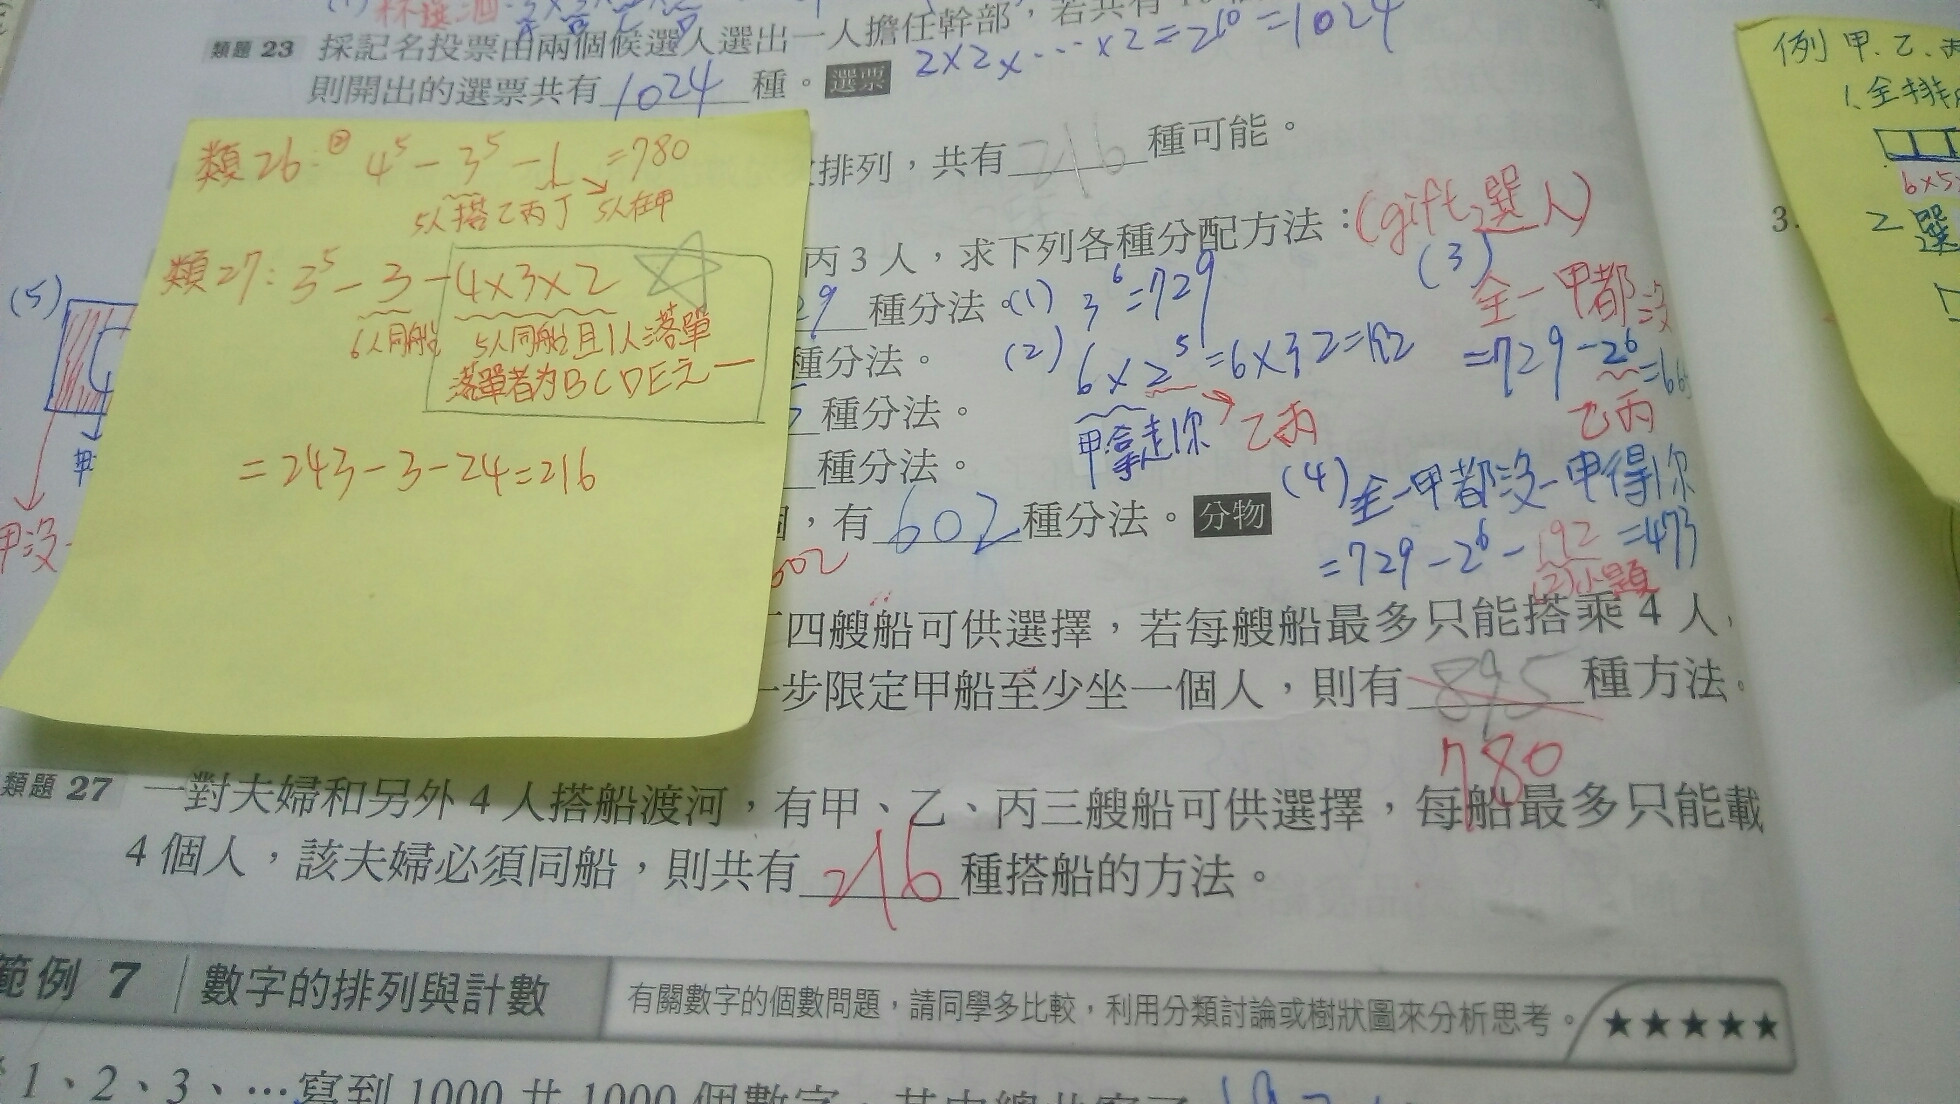 類題 23 採記名投票由兩個候選人選出一人擔任幹部，若共有 10
2×2×…×2=2^10=1024
則開出的選票共有 1024 種。選票
排列，共有 216 種可能。
丙 3 人，求下列各種分配方法：(gift選人)
29 種分法。(1) 3^6=729
種分法。 (2) 6×2^5=6×32=192
甲拿走你 乙丙
種分法。
種分法。
個，有 602 種分法。分物
602
(3)
全-甲都沒
=729-2^6=66
乙丙
(4) 全-甲都沒-甲得你
=729-2^6-192=473
(2)小題
四艘船可供選擇，若每艘船最多只能搭乘 4 人，
一步限定甲船至少坐一個人，則有 895 種方法。
780
類題 27 一對夫婦和另外 4 人搭船渡河，有甲、乙、丙三艘船可供選擇，每船最多只能載
4 個人，該夫婦必須同船，則共有 216 種搭船的方法。
範例 7 數字的排列與計數 有關數字的個數問題，請同學多比較，利用分類討論或樹狀圖來分析思考。★★★★★
1、2、3、…寫到 1000 共 1000 個數字，其中總共寫了
類26:② 4^5-3^5-1=780
5人搭乙丙丁 5人在甲
類27: 3^5-3-4×3×2
6人同船 5人同船且1人落單
落單者為BCDE之一
=243-3-24=216
(5)
甲
甲沒
例 甲、乙、丙
1.全排
6×5×
3.
2.選